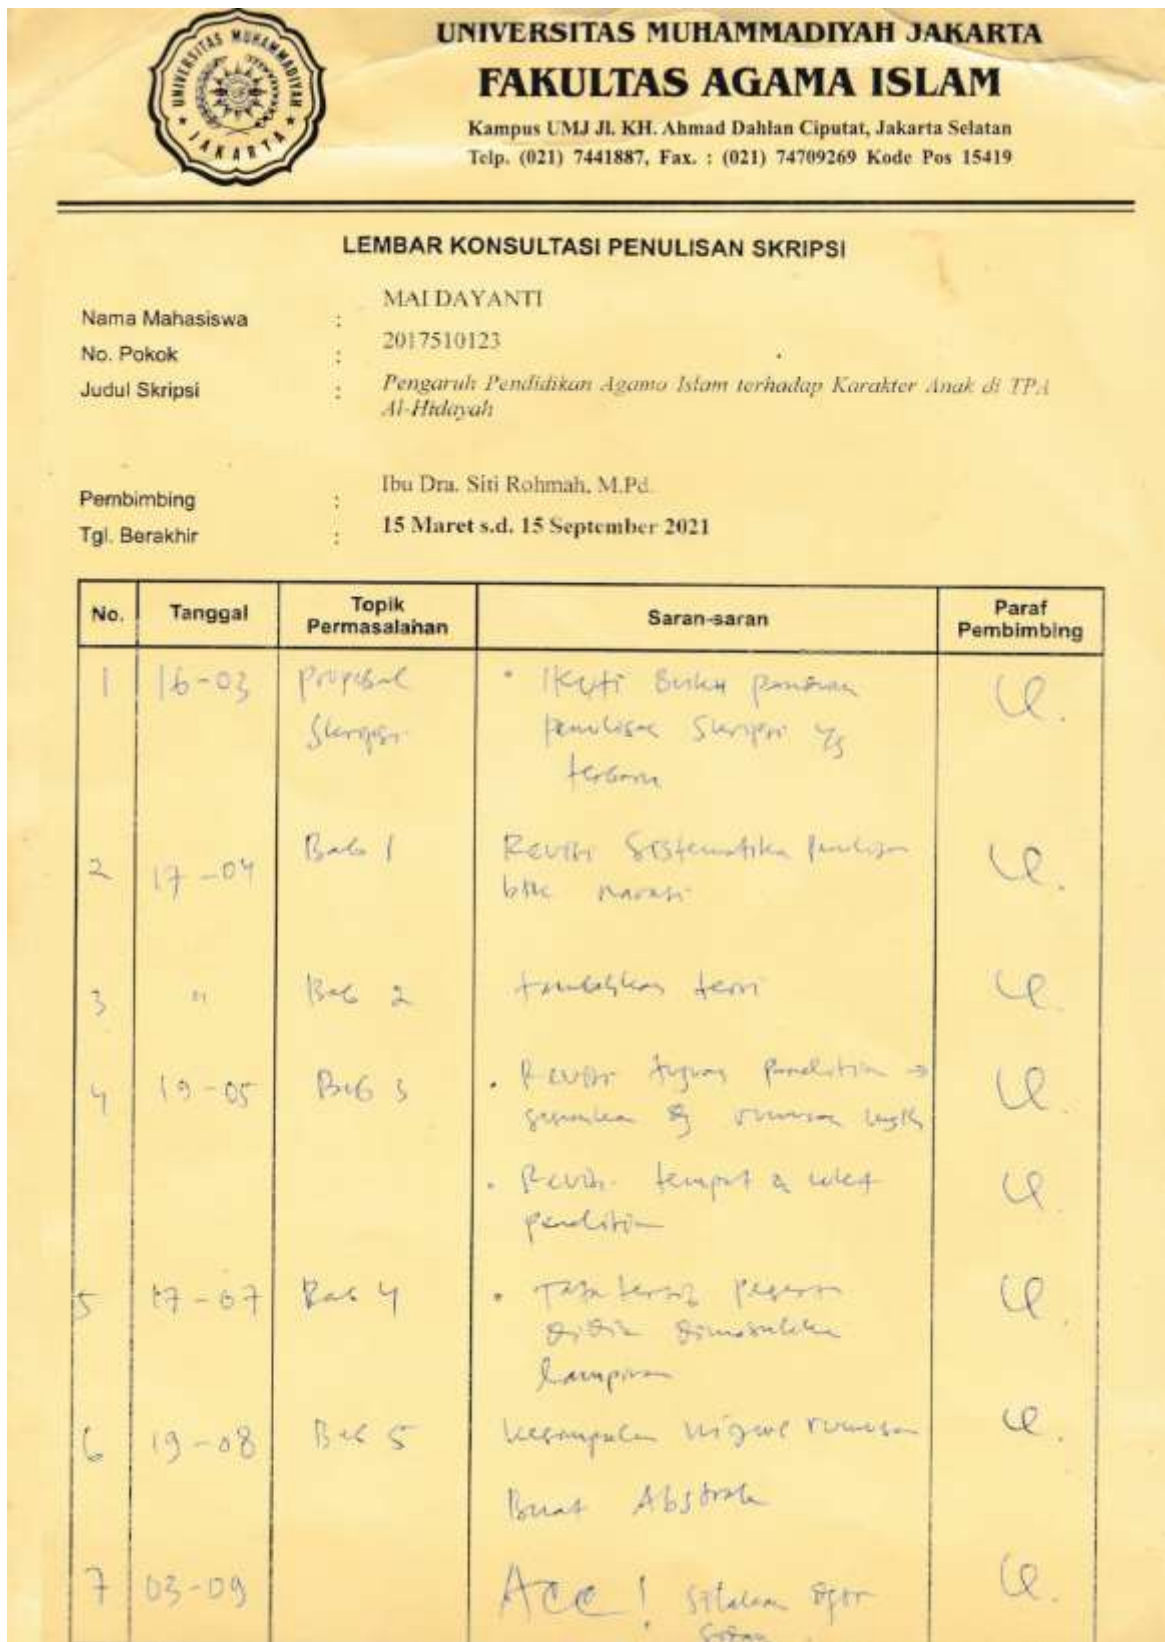 UNIVERSITAS MUHAMMADIYAH JAKARTA
UNIVERSITAS MUHAMMADIYAH JAKARTA
FAKULTAS AGAMA ISLAM
Kampus UMJ Jl. KH. Ahmad Dahlan Ciputat, Jakarta Selatan
Telp. (021) 7441887, Fax. : (021) 74709269 Kode Pos 15419
LEMBAR KONSULTASI PENULISAN SKRIPSI
Nama Mahasiswa : MAI DAYANTI
No. Pokok : 2017510123
Judul Skripsi : Pengaruh Pendidikan Agama Islam terhadap Karakter Anak di TPA
Al-Hidayah
Pembimbing : Ibu Dra. Siti Rohmah, M.Pd.
Tgl. Berakhir : 15 Maret s.d. 15 September 2021
No. Tanggal Topik Permasalahan Saran-saran Paraf Pembimbing
1 16-03 Proposal • Ikuti Buku panduan
Skripsi penulisan Skripsi yg
terbaru
2 17-04 Bab 1 Revisi Sistematika penulisan
btk narasi
3 " Bab 2 tambahkan teori
4 19-05 Bab 3 • Revisi tujuan penelitian →
sesuaikan dg rumusan
• Revisi tempat & waktu
penelitian
5 17-07 Bab 4 • Tata tertib
didik dimasukkan
lampiran
6 19-08 Bab 5 kesimpulan rumusan
Buat Abstrak
7 03-09 ACC! Silakan